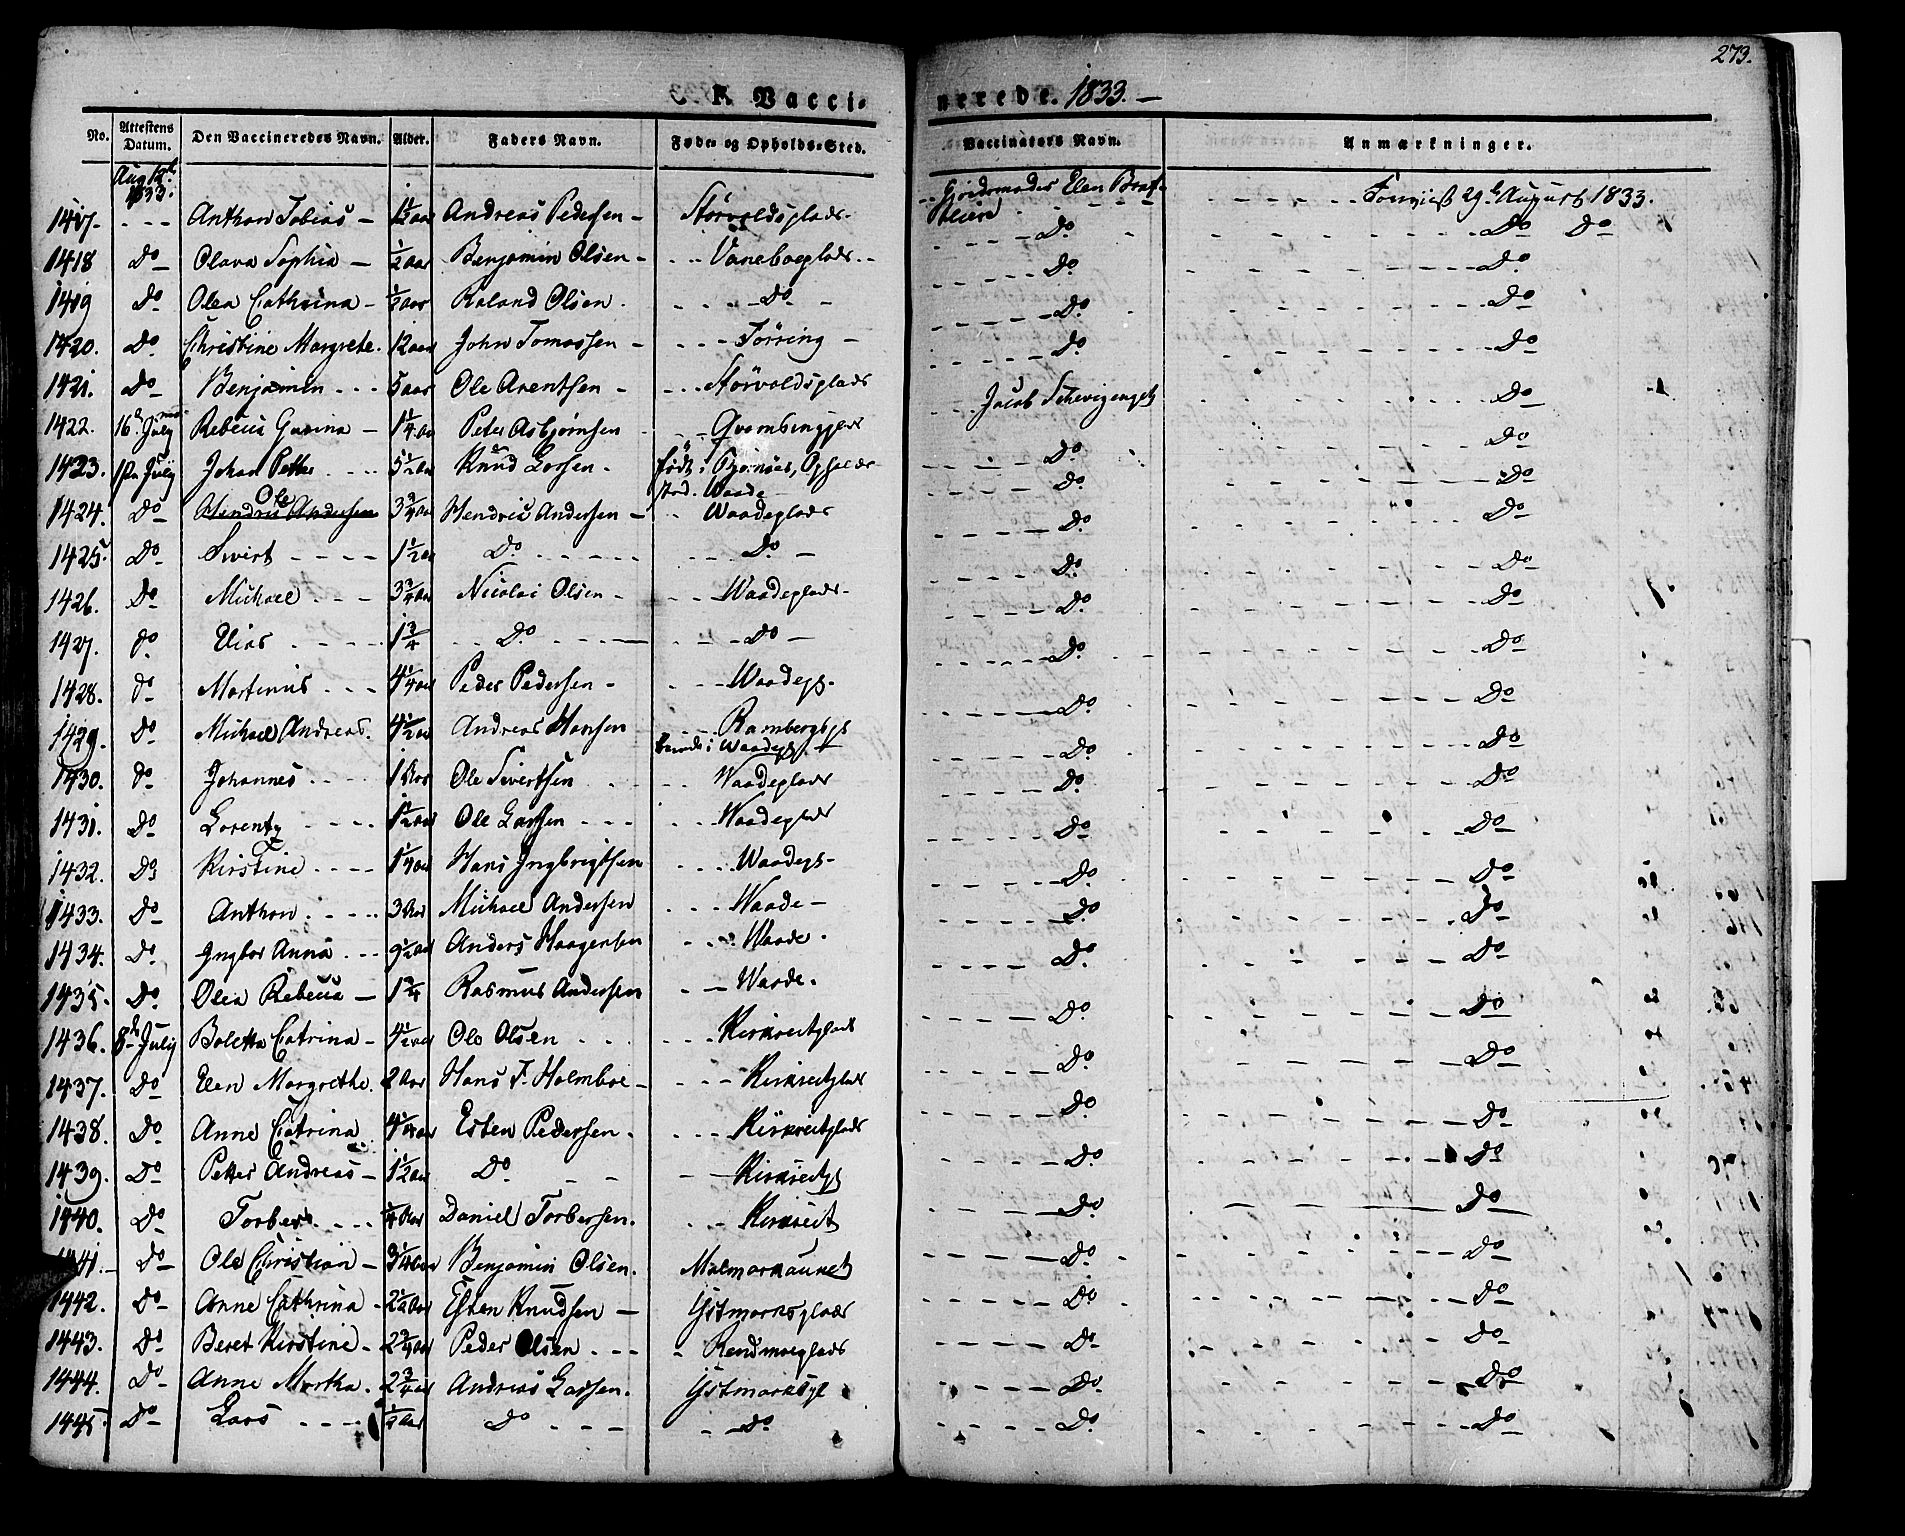 273.
F. Vacci-
nerede. 1833. –
No. Attestens Datum. Den Vaccineredes Navn. Alder. Faders Navn. Føde- og Opholds-Sted. Vaccinators Navn. Anmærkninger.
Aug 12te 1833.
1417. - - - Anthon Tobias – Andreas Pedersen – Størvoldsplads - Gjordemoder Elen - - Forevist 29de August 1833.
1418 Do – Olava Sophia – 1/2 Aar Benjamin Olsen – - - - - Do - Do Do
1419 Do Olea Cathrina – Roland Olsen. - - Do – - - Do - Do
1420. Do Christine Margrete. 12 Aar John Tomassen – - - Tørring – - - Do - Do
1421. Do – Benjamin - - - 5 aar Ole Arentsen – - - Størvoldsplads - - Do - Do
1422. 16de July Rebecca – 1 1/4 Aar Peter Asbjørnsen - - - Jacob - Do
1423. 10de July Johan Petter - - - 5 1/2 Aar Knud Larsen – født i - - Do - Do
sted. Waade
1424. Do – Ole Hendric Andersen 3 3/4 Aar Hendric Andersen – - - Waadeplads - - Do - Do
1425. Do – Sivert - - - - 1 1/2 Aar Do - - - - - - - Do – - - Do - Do
1426. Do Michael - - - 3 3/4 Aar Nicolai Olsen – - - Waadeplads - - - Do - Do
1427. do Elias - - - - 1 3/4 - - Do - - - - - - Do – - - Do - Do
1428. do Martinus - - - 4 1/4 Aar Peder Pedersen – - - - Waadeps. - - Do - Do
1429. Do Michael Andreas. 4 1/2 Aar Andreas Hansen - - Rambergsps - - Do - Do
i Waadeps
1430. do Johannes - - - 1 Aar Ole Sivertsen - - Waadeplads - - Do - Do
1431. Do Lorentz - - - - 1 1/2 Aar Ole Larsen - - - - - Waadeplads - - Do - Do
1432. Do Kirstine - - - - 1 1/4 Aar Hans Ingbrigtsen - - - Waadeps- - - Do - Do
1433. Do Anthon - - - - 3 Aar Michael Andersen - - - Waade – - - Do - Do
1434. Do Ingbor Anna - - - 9 1/2 Aar Anders Haagensen - - - Waade. - - Do - Do
1435. Do Olea Rebecca – 1 3/4 Rasmus Andersen - – Waade. - - Do - Do
1436. 8de July Boletta Catrina – 4 1/2 Aar Ole Olsen - - - - - - Kirkreitplads - - Do - Do
1437. Do Elen Margrethe. 2 Aar Hans F. Holmboe – - - - Kirkreitplads - - Do - Do
1438. Do Anne Catrina. 4 1/4 Aar Esten Pedersen. - - - Kirkreitplads - - Do - Do
1439. Do – Petter Andreas – 1 1/2 Aar Do - - – Kirkreitps - - Do - Do
1440. Do Torber - - - 1/4 Aar Daniel Torbersen. - - - Kirkreit - - Do - Do
1441. Do Ole Christian – 3 1/4 Aar Benjamin Olsen. - - Do - Do
1442. Do – Anne Cathrina – 2 1/2 Aar Esten Knudsen – Ystmarksplads - - Do - Do
1443. Do – Beret Kirstine – 2 3/4 Aar Peder Olsen - - - - - - Do - Do
1444. Do – Anne Martha. 2 3/4 Aar Andreas Larsen. - - Do - Do
1445. Do – Lars - - - - 1/2 Aar Do - - - - - Do - - Do - Do